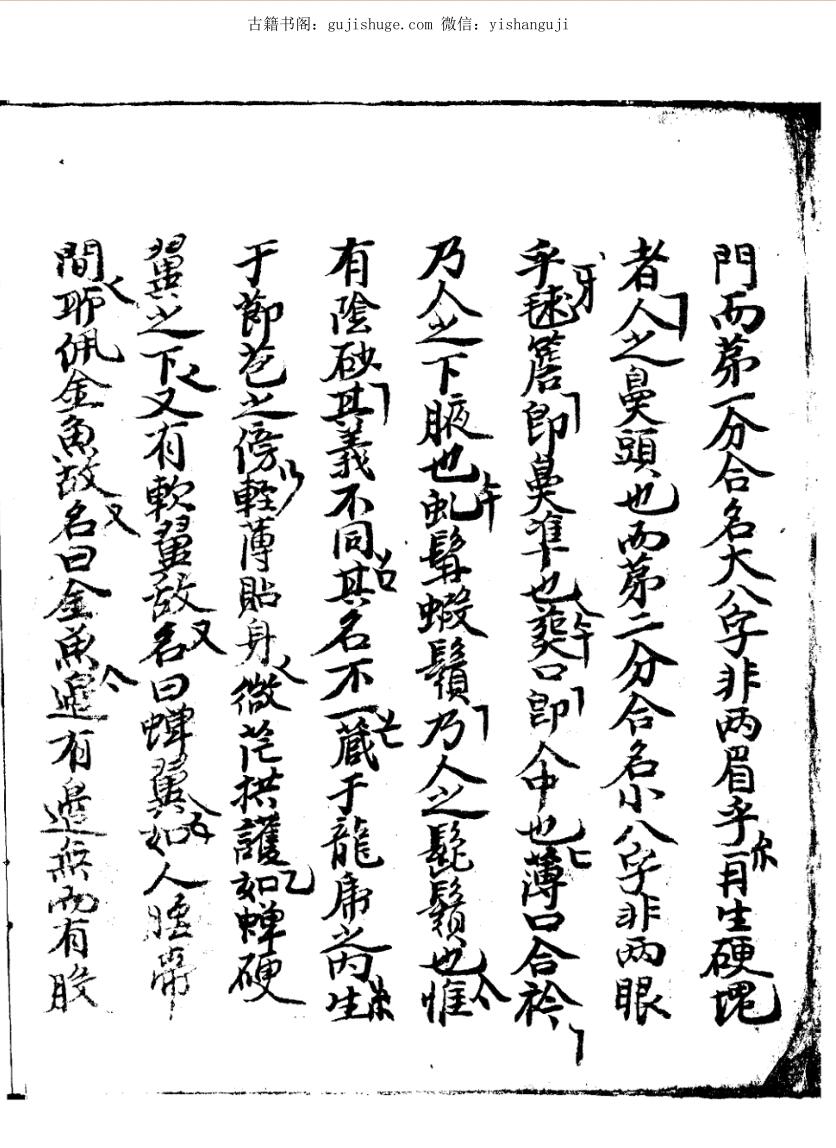 古籍书阁：gujishuge.com 微信：yishanguji
門而苐一分合名大八字非两眉乎再生硬塊
者人之鼻頭也而苐二分合名小八字非两眼
乎毬簷即鼻準也葬口即人中也薄口合衿
乃人之下腋也虬髯蝦鬚乃人之髭鬚也惟
有陰砂其義不同其名不一蔵于龍席之内生
于節苞之傍輕薄貼身微茫拱護如蝉硬
翼之下又有軟翼故名曰蝉翼如人腰帶
間聊佩金魚故名曰金魚邉有邉無而有股